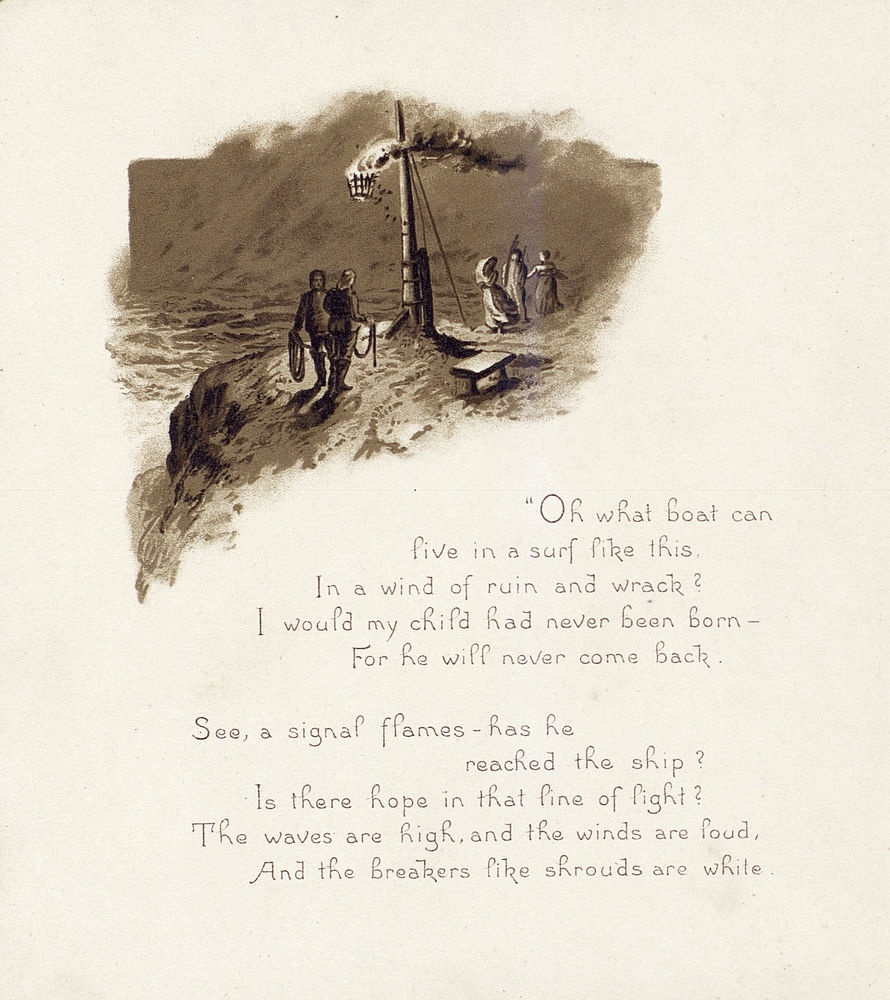 "Oh what boat can
live in a surf like this,
In a wind of ruin and wrack?
I would my child had never been born –
For he will never come back.
See, a signal flames - has he
reached the ship?
Is there hope in that line of light?
The waves are high, and the winds are loud,
And the breakers like shrouds are white.